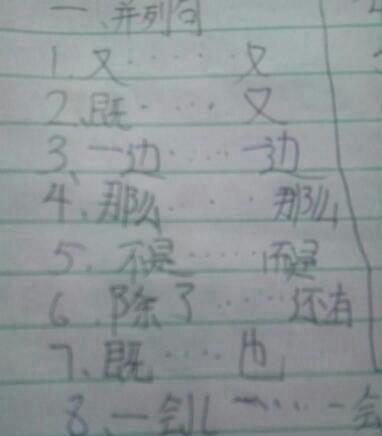 一、并列句
1.又……又
2.既……又
3、一边……一边
4、那么……那么
5、不是……而是
6.除了……还有
7、既……也
8、一会儿……一会